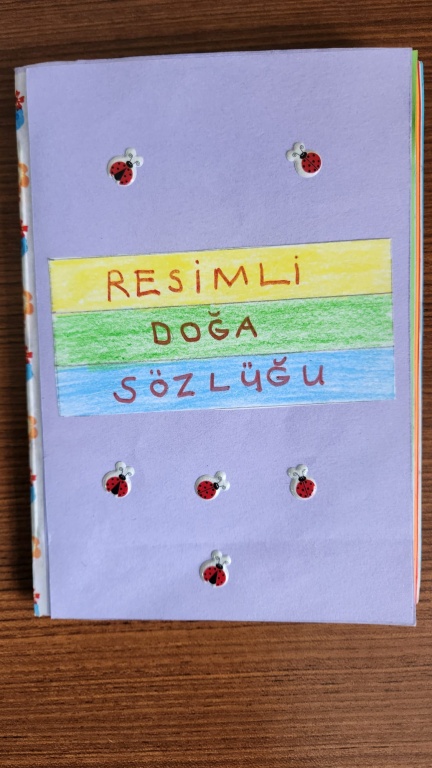 RESİMLİ
DOĞA
SÖZLÜĞÜ